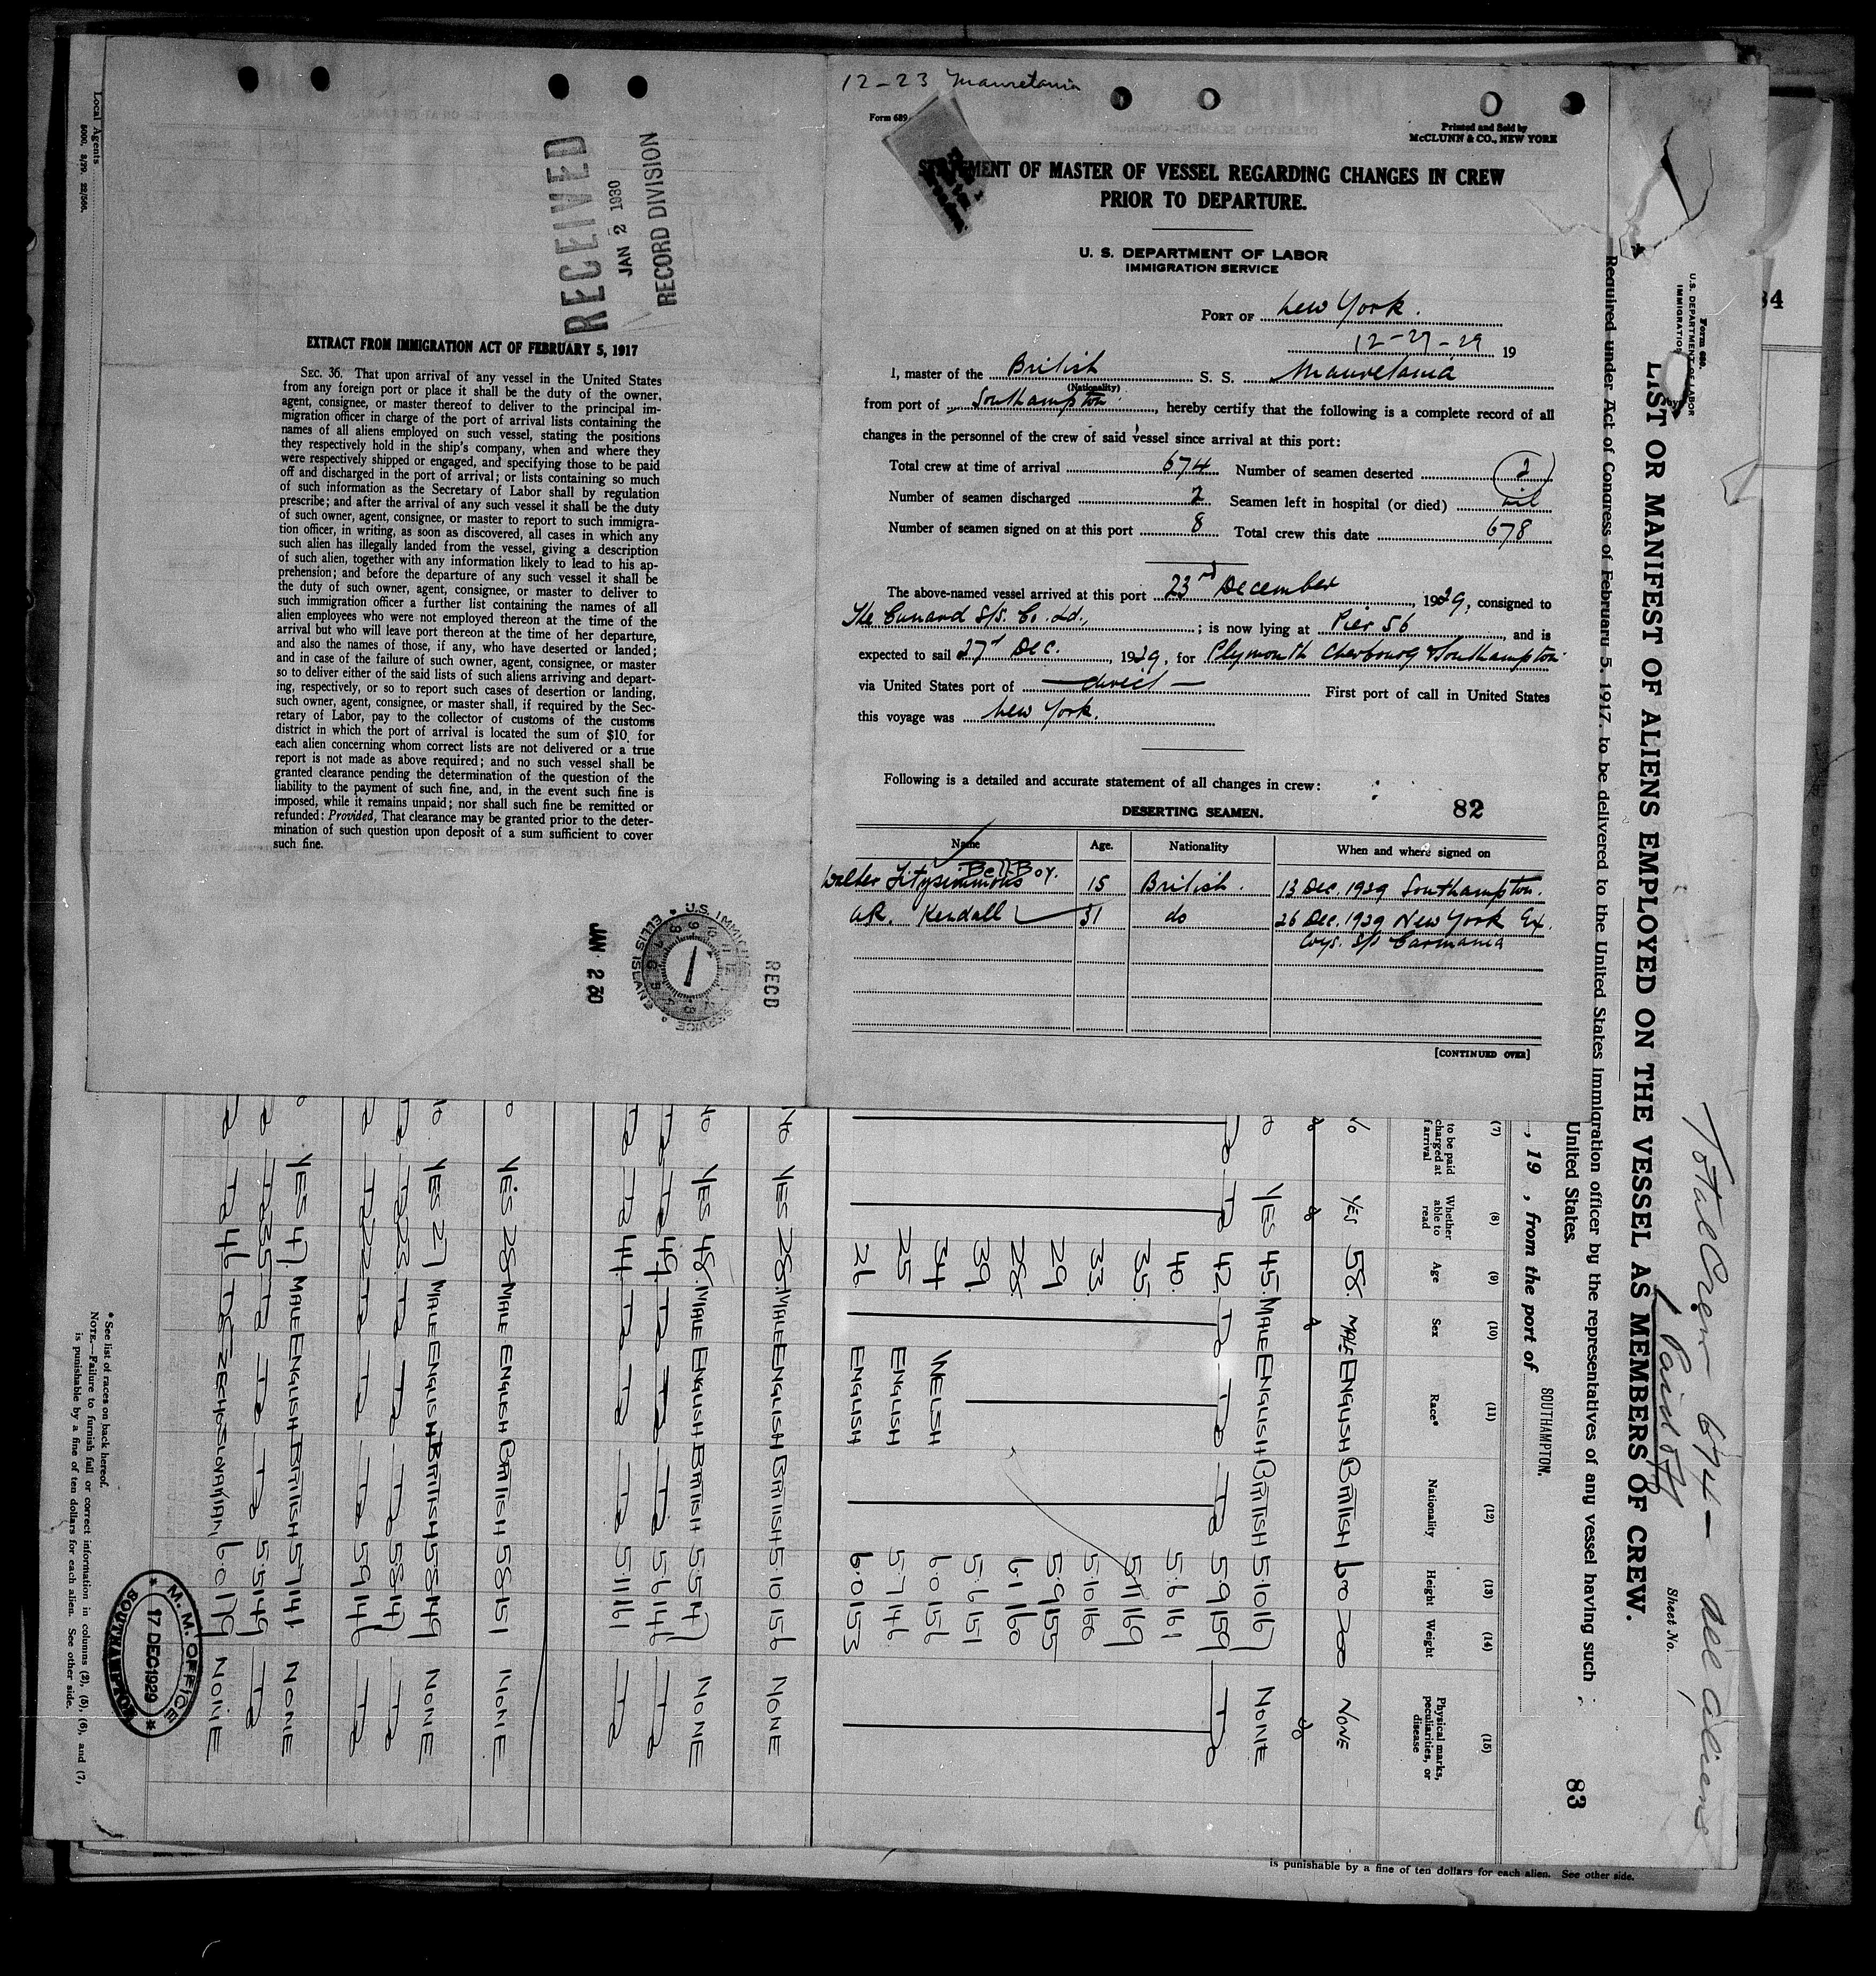 12-23 Mauretania
Form 689
Printed and Sold by
McCLUNN & CO., NEW YORK
MENT OF MASTER OF VESSEL REGARDING CHANGES IN CREW
PRIOR TO DEPARTURE.
U. S. DEPARTMENT OF LABOR
IMMIGRATION SERVICE
PORT OF New York.
12-27-29 19
I, master of the British S. S. Mauretania
(Nationality)
from port of Southampton, hereby certify that the following is a complete record of all
changes in the personnel of the crew of said vessel since arrival at this port:
Total crew at time of arrival 674 Number of seamen deserted 2
Number of seamen discharged 2 Seamen left in hospital (or died) nil
Number of seamen signed on at this port 8 Total crew this date 678
The above-named vessel arrived at this port 23rd December, 1929, consigned to
The Cunard S/S. Co. Ld., ; is now lying at Pier 56, and is
expected to sail 27th Dec., 1929, for Plymouth Cherbourg & Southampton
via United States port of — direct — First port of call in United States
this voyage was New York.
Following is a detailed and accurate statement of all changes in crew:
DESERTING SEAMEN. 82
Name Age. Nationality When and where signed on
Bell Boy.
Walter Fitzsimmons 15 British. 13 Dec. 1929 Southampton.
AR. Kendall 31 do 26 Dec. 1929 New York Ex.
S/S Carmania
[CONTINUED OVER]
Local Agents
5000, 3/79. 22/566.
RECEIVED
JAN 2 1930
RECORD DIVISION
EXTRACT FROM IMMIGRATION ACT OF FEBRUARY 5, 1917
SEC. 36. That upon arrival of any vessel in the United States
from any foreign port or place it shall be the duty of the owner,
agent, consignee, or master thereof to deliver to the principal im-
migration officer in charge of the port of arrival lists containing the
names of all aliens employed on such vessel, stating the positions
they respectively hold in the ship's company, when and where they
were respectively shipped or engaged, and specifying those to be paid
off and discharged in the port of arrival; or lists containing so much
of such information as the Secretary of Labor shall by regulation
prescribe; and after the arrival of any such vessel it shall be the duty
of such owner, agent, consignee, or master to report to such immigra-
tion officer, in writing, as soon as discovered, all cases in which any
such alien has illegally landed from the vessel, giving a description
of such alien, together with any information likely to lead to his ap-
prehension; and before the departure of any such vessel it shall be
the duty of such owner, agent, consignee, or master to deliver to
such immigration officer a further list containing the names of all
alien employees who were not employed thereon at the time of the
arrival but who will leave port thereon at the time of her departure,
and also the names of those, if any, who have deserted or landed;
and in case of the failure of such owner, agent, consignee, or master
so to deliver either of the said lists of such aliens arriving and depart-
ing, respectively, or so to report such cases of desertion or landing,
such owner, agent, consignee, or master shall, if required by the Sec-
retary of Labor, pay to the collector of customs of the customs
district in which the port of arrival is located the sum of $10 for
each alien concerning whom correct lists are not delivered or a true
report is not made as above required; and no such vessel shall be
granted clearance pending the determination of the question of the
liability to the payment of such fine, and, in the event such fine is
imposed, while it remains unpaid; nor shall such fine be remitted or
refunded: Provided, That clearance may be granted prior to the deter-
mination of such question upon deposit of a sum sufficient to cover
such fine.
JAN 2 30
U.S. IMMIG SERVICE
ELLIS ISLAND
RECD
84
Total Crew 674 — all aliens
1 Paid off
Form 680.
U.S. DEPARTMENT OF LABOR
IMMIGRATION
Sheet No.
LIST OR MANIFEST OF ALIENS EMPLOYED ON THE VESSEL AS MEMBERS OF CREW.
Required under Act of Congress of February 5, 1917, to be delivered to the United States immigration officer by the representatives of any vessel having such
United States.
83
, 19 , from the port of SOUTHAMPTON.
(7) (8) (9) (10) (11) (12) (13) (14) (15)
to be paid charged at f arrival Whether able to read Age Sex Race* Nationality Height Weight Physical marks, peculiarities, or disease
YES 58. MALE ENGLISH BRITISH 6 0 200 NONE
YES 45. MALE ENGLISH BRITISH 5.10 167 NONE
42. 5.9 159
40. 5.6 161
35. 5.11 169
33. 5.10 160
29 5.9 155
28. 6.1 160
39. 5.6 151
34 WELSH 6.0 156
25 ENGLISH 5.7 146
26 ENGLISH 6.0 153
No YES 28. MALE ENGLISH BRITISH 5.10 156 NONE
No YES 48. MALE ENGLISH BRITISH 5.5 147 NONE
49 5.6 146
44. 5.11 161
YES 28 MALE ENGLISH BRITISH 5.8 151 NONE
No. YES 27 MALE ENGLISH BRITISH 5.8 149 NONE
28. 5.8 147
22 5.9 146
YES 47. MALE ENGLISH BRITISH 5.7 141 NONE
35 5.5 149
46 CZECHOSLOVAKIAN 6.0 179 NONE
* See list of races on back hereof.
NOTE.—Failure to furnish full or correct information in columns (2), (5), (6), and (7,
is punishable by a fine of ten dollars for each alien. See other side.
M. M. OFFICE
17 DEC 1929
SOUTHAMPTON
is punishable by a fine of ten dollars for each alien. See other side.